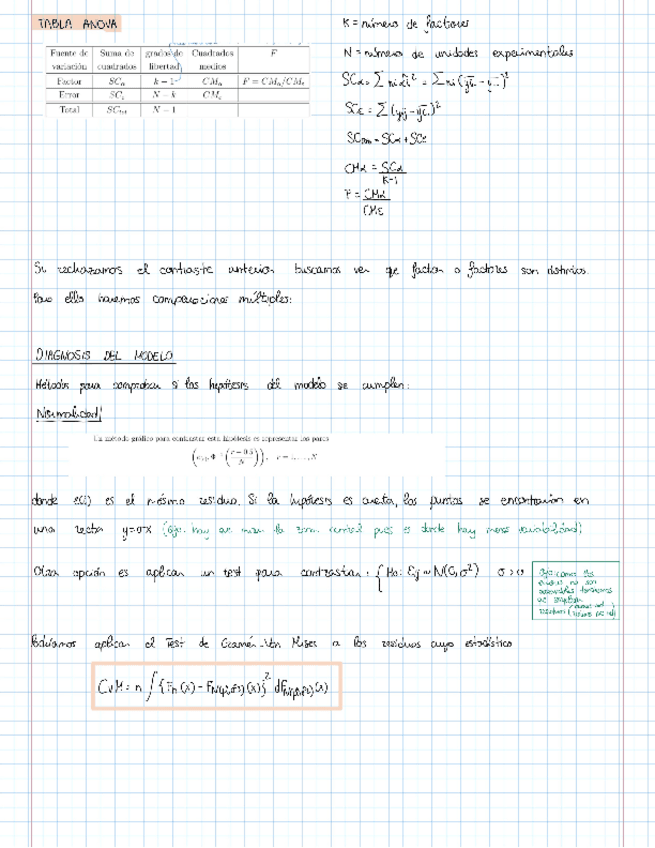 TABLA ANOVA
Fuente de variación | Suma de cuadrados | grados de libertad | Cuadrados medios | F
Factor | SCα | k − 1 | CMα | F = CMα/CMε
Error | SCε | N − k | CMε
Total | SCtot | N − 1
K = número de factores
N = número de unidades experimentales
SCα = Σ ni α̂i² = Σ ni (ȳi. - ȳ..)²
SCε = Σ (yij - ȳi.)²
SCtot = SCα + SCε
CMα = SCα / K-1
F = CMα / CMε
Si rechazamos el contraste anterior buscamos ver qe factor o factores son distintos.
Para ello haremos comparaciones múltiples:
DIAGNOSIS DEL MODELO
Métodos para comprobar si las hipótesis del modelo se cumplen:
Normalidad
Un método gráfico para contrastar esta hipótesis es representar los pares
donde e(i) es el r-ésimo residuo. Si la hipótesis es cierta, los puntos se encontrarán en
una recta y=σx (ojo: hay qe mirar la zona central pues es donde hay menos variabilidad)
Otra opción es aplicar un test para contrastar: { H0: Eij ~ N(0, σ²) σ>0
Ojo: como los
son
residuos
Podríamos aplicar el Test de Cramér-Von Mises a los residuos cuyo estadístico